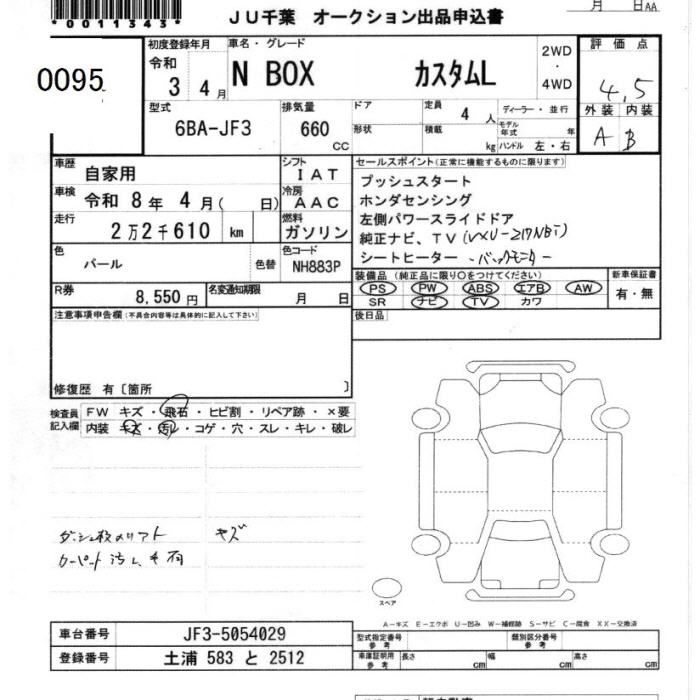 *0011343*
JU千葉 オークション出品申込書
月 日AA
0095
初度登録年月
令和
3 4月
車名・グレード
N BOX カスタムL
2WD
・
4WD
評価点
4.5
外装 内装
A B
型式
6BA-JF3
排気量
660
cc
ドア
形状
定員
4 人
積載
kg
ディーラー・並行
モデル年式 年
ハンドル 左・右
車歴
自家用
シフト
IAT
車検
令和 8年 4月( 日)
冷房
AAC
走行
2万2千610 km
燃料
ガソリン
色
パール
色替
色コード
NH883P
R券
8,550円
名変通知期限
月 日
セールスポイント(正常に機能するものに限ります)
プッシュスタート
ホンダセンシング
左側パワースライドドア
純正ナビ、TV(VXU-217NBi)
シートヒーター -バックモニター-
装備品 (純正品に限り○をつけてください)
PS PW ABS エアB AW
SR ナビ TV カワ
新車保証書
有・無
後日品
注意事項申告欄(不具合内容等は具体的に記入して下さい)
修復歴 有〔箇所 〕
検査員記入欄
FW キズ・飛石・ヒビ割・リペア跡・×要
内装 キズ・汚レ・コゲ・穴・スレ・キレ・破レ
キズ
カーペット汚レ
スペア
A－キズ E－エクボ U－凹み W－補修跡 S－サビ C－腐食 XX－交換済
車台番号 JF3-5054029
登録番号 土浦 583 と 2512
型式指定番号
参考
類別区分番号
参考
車庫証明用
参考
長さ cm 幅 cm 高さ cm